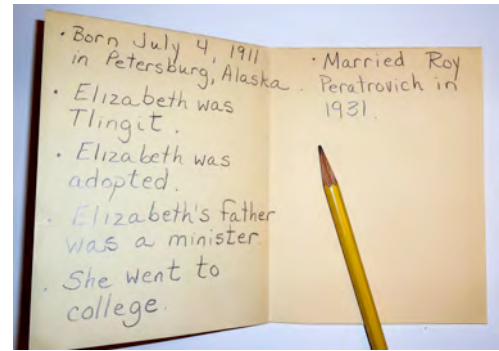 · Born July 4, 1911
in Petersburg, Alaska.
· Elizabeth was
Tlingit.
· Elizabeth was
adopted.
· Elizabeth's father
was a minister.
· She went to
college.
· Married Roy
Peratrovich in
1931.